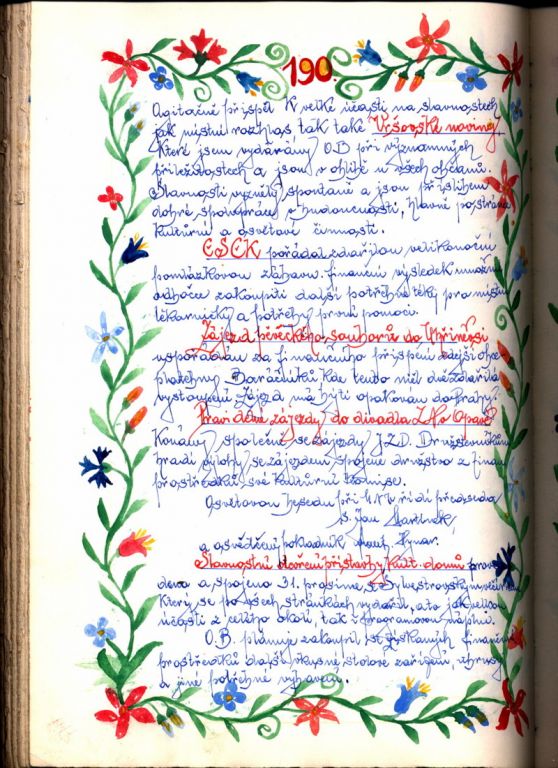 190
Agitačně přispěl k velké účasti na slavnostech
jak místní rozhlas tak také Vršovské noviny
které jsou vydávány O.B při významných
příležitostech a jsou v oblibě u všech občanů.
Slavnosti vyzněly spontáně a jsou příslibem
dobré spolupráce v budoucnosti, hlavně po stránce
kulturní a osvětové činnosti.
ČSČK pořádal zdařilou velikonoční
pomlázkovou zábavu. finanční výsledek umožnil
odbočce zakoupiti další potřebné léky pro místní
lékarničky a potřeby první pomoci.
Zájezd pěveckého souboru do Uhříněvsi
uspořádán za finančního přispění zdejší obce
Baráčníků kde tento měl
vystoupení Zájezd má býti opakován do Prahy.
Pravidelné zájezdy do divadla Z.N. v Opavě
Konány společně se zájezdy J.Z.D. Družstevníkům
hradí se zájezdem spojené družstvo z
prostředků své kulturní komise.
Osvětovou besedu při M.N.V. řídí předseda
s. Jan Martinek,
a osvědčený pokladník
Slavnostní otevření přístavby kult. domu
a spojeno 31. prosince, s Sylvestrovským
který se po všech stránkách vydařil, a to jak velikou
účastí z celého okolí, tak i programovou náplní.
O.B. plánuje zakoupit ze získaných finančních
prostředků další vkusné stolové zařízení, ubrusy
a jiné potřebné vybavení.